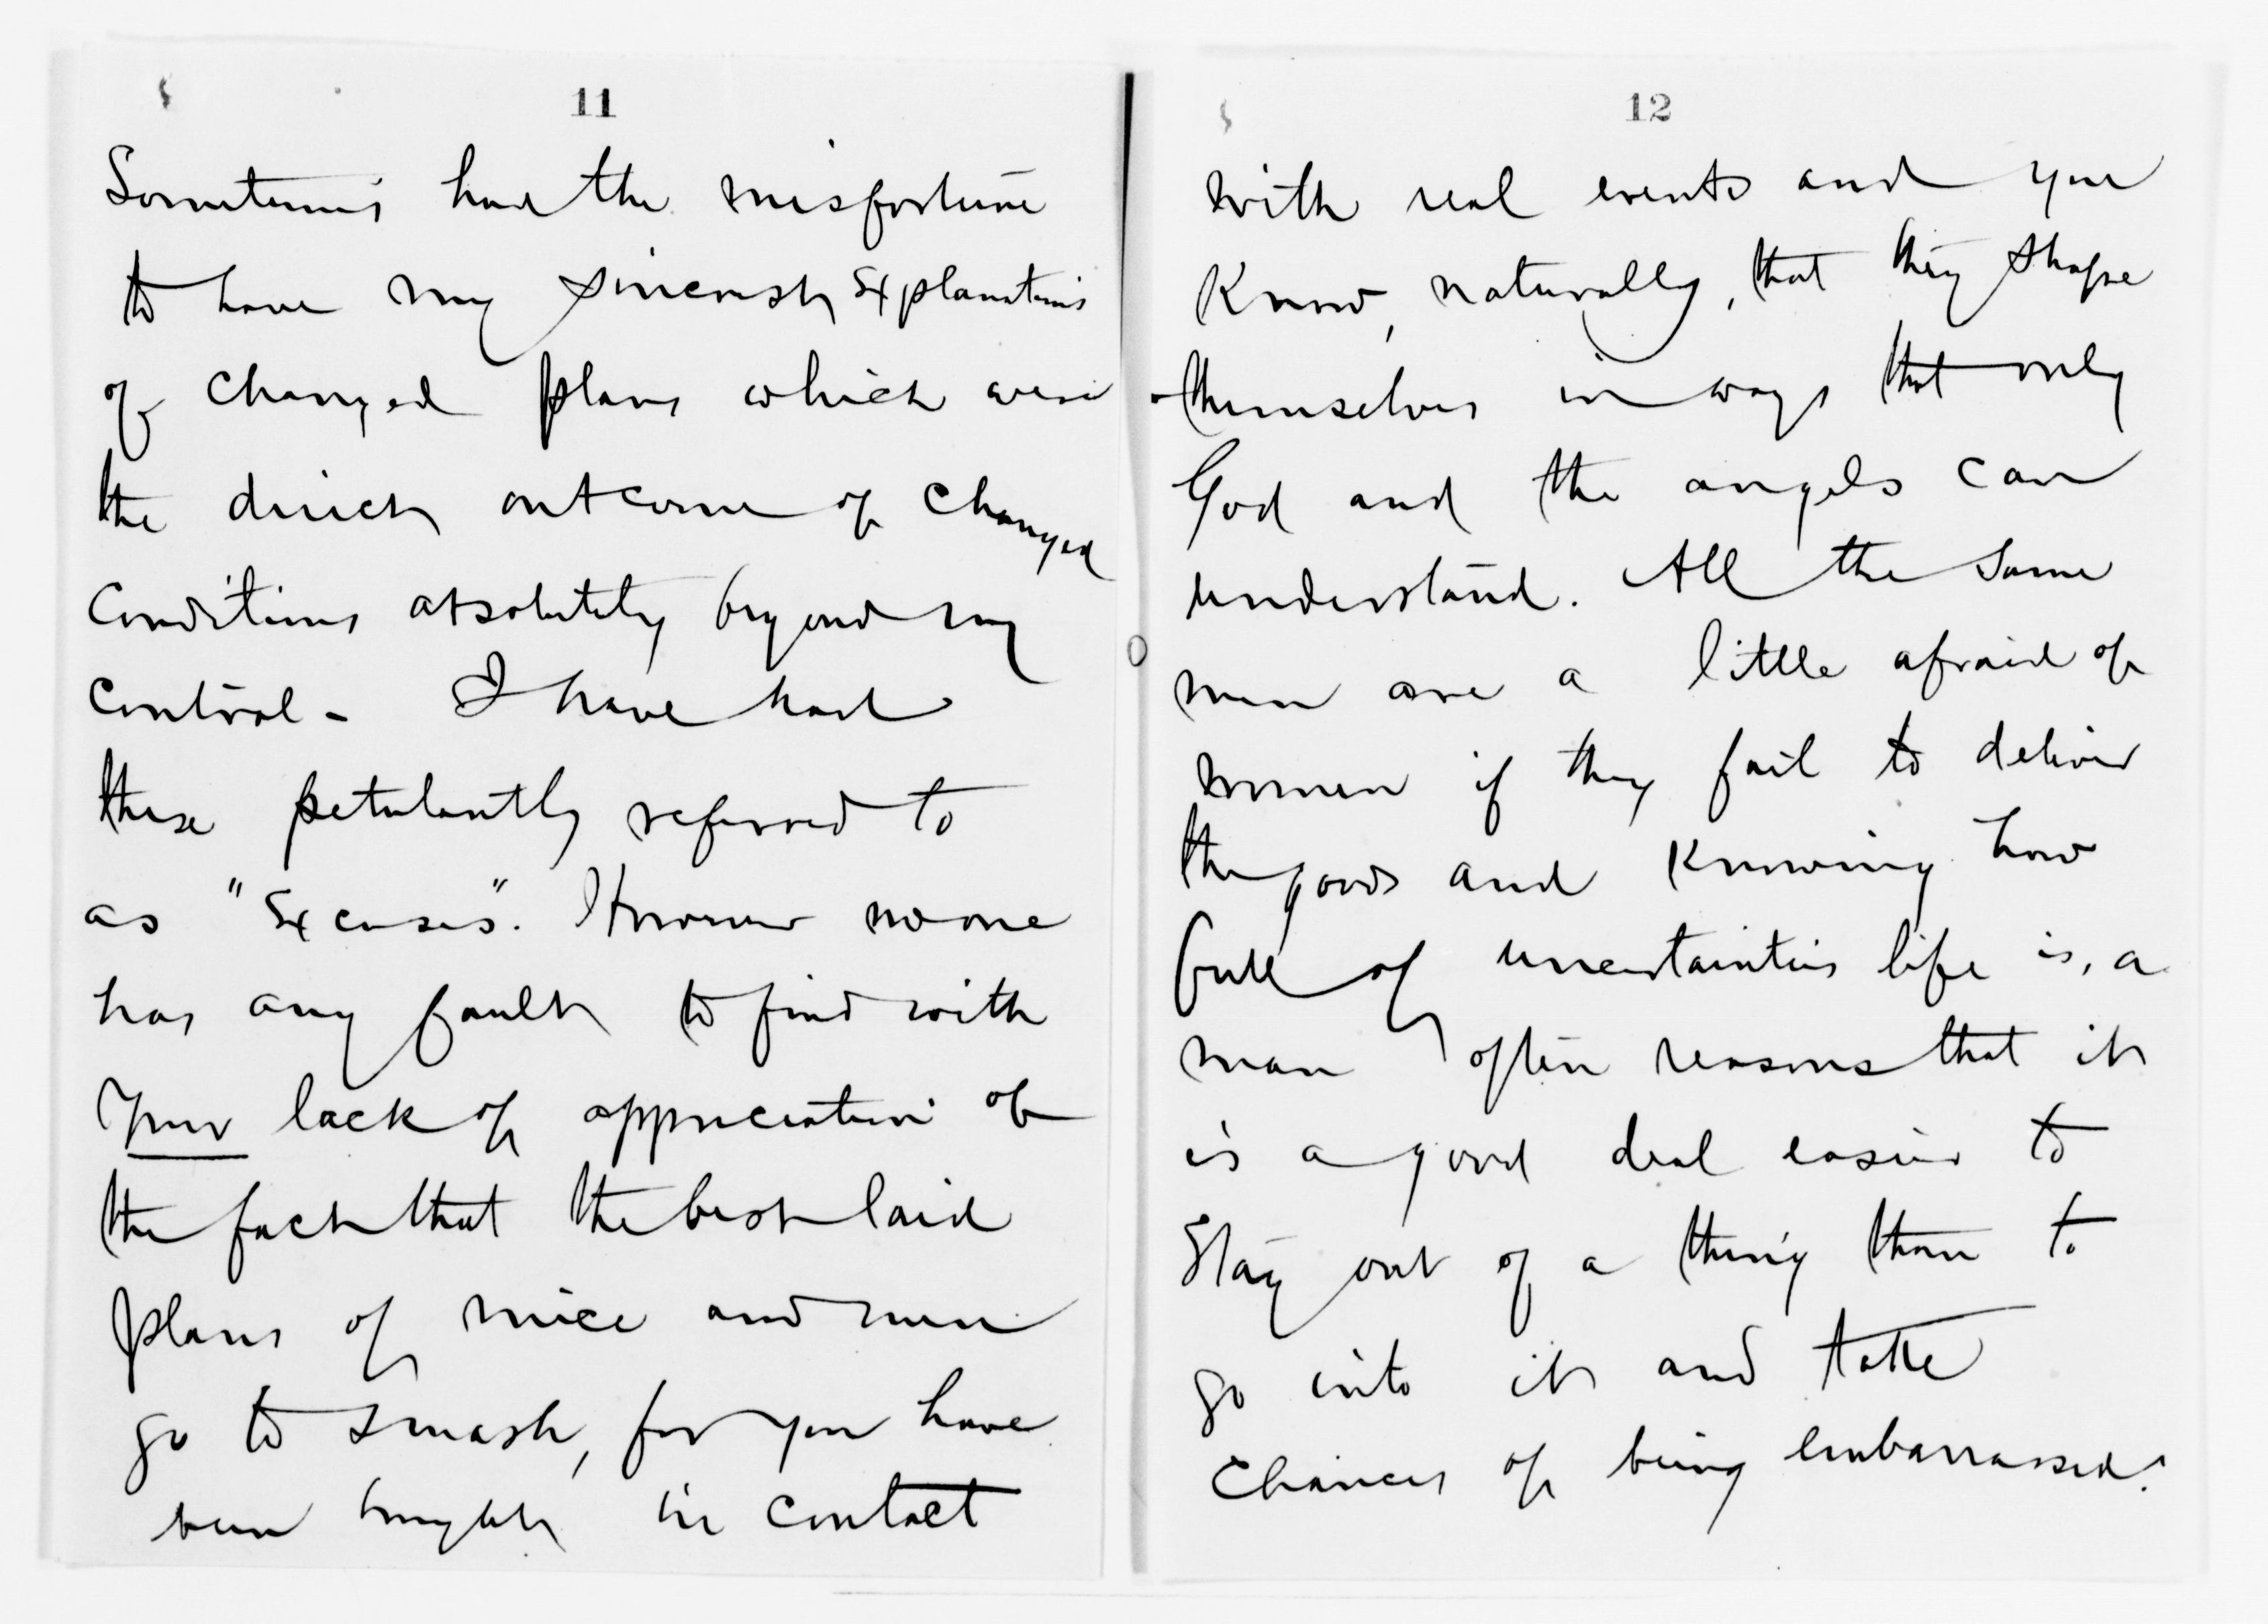 11
Sometimes have the misfortune
to have my sincerest explanations
of changed plans which were
the direct outcome of changed
conditions absolutely beyond my
control - I have had
these petulantly referred to
as "excuses". However no one
has any fault to find with
your lack of appreciation of
the fact that the best laid
plans of mice and men
go to smash, for you have
been brought in contact
12
with real events and you
know, naturally, that they shape
themselves in ways that only
God and the angels can
understand. All the same
men are a little afraid of
women if they fail to deliver
the goods and knowing how
full of uncertainties life is, a
man often reasons that it
is a good deal easier to
stay out of a thing than to
go into it and take
chances of being embarrassed.